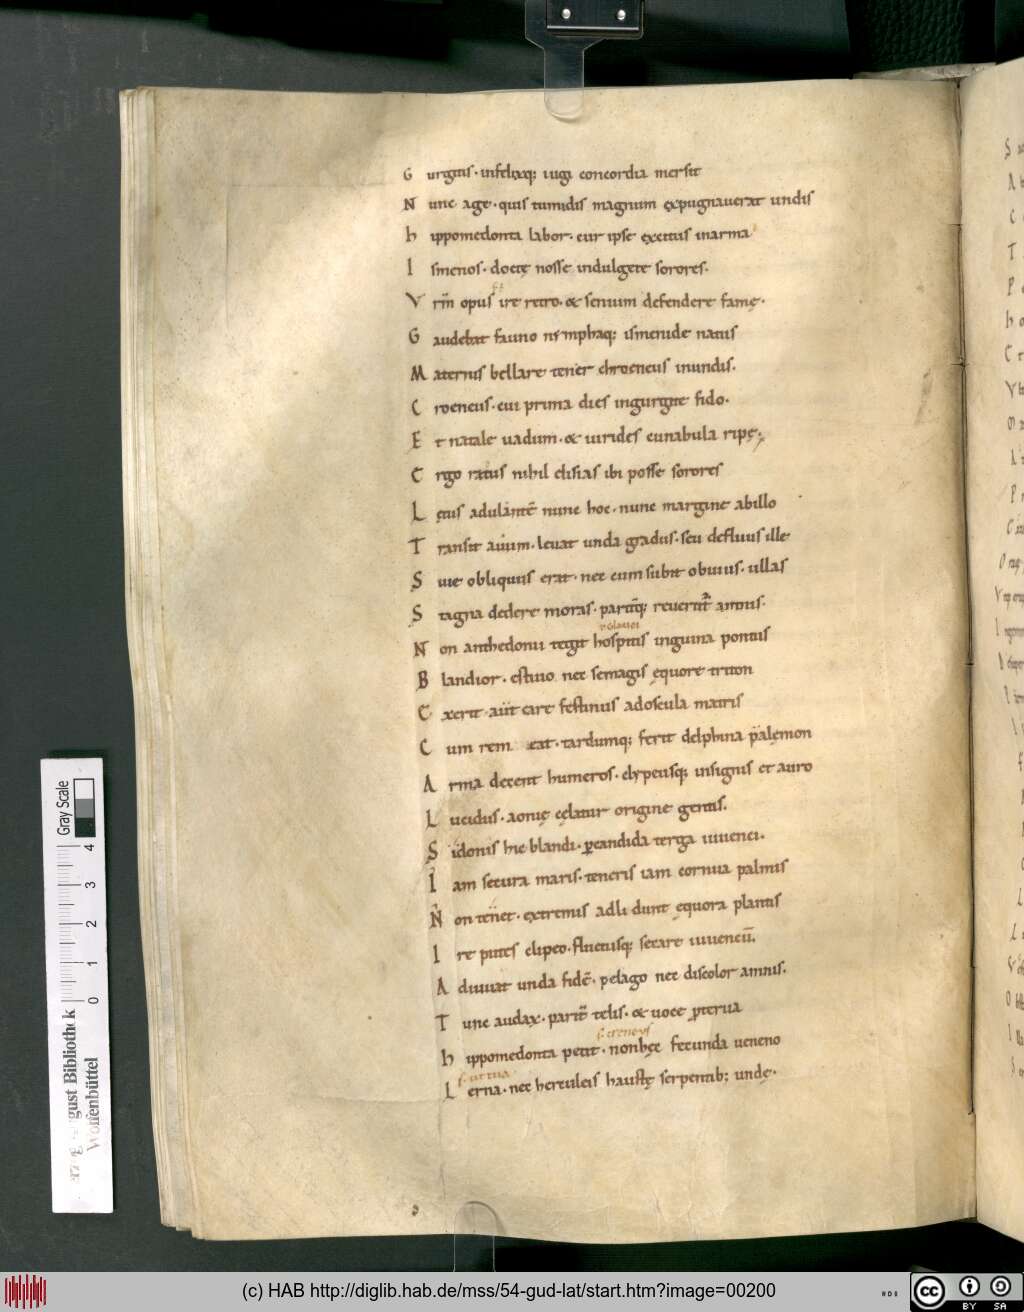 G urgitis · infelixq; iugi concordia mersit
N unc age · quis tumidis magnum expugnauerat undis
h ippomedonta labor · cur ipse excitus inarma
I smenos · doctę nosse indulgete sorores·
V rm̄ opus ire retro · & senium defendere famę·
G audebat fauno nimphaq; ismenide natus
M aternis bellare tener chroeneus inundis·
C roeneus · cui prima dies ingurgite fido·
E t natale uadum · & uirides cunabula ripę·
E rgo ratus nihil elisias ibi posse sorores
L ętus adulantē nunc hoc · nunc margine abillo
T ransit auum · leuat unda gradus · seu defluus ille
S iue obliquus erat · nec cum subit obuius · ullas
S tagna dedere moras · paritq; reuertit amnis·
N on anthedonii tegit hospitis inguina pontus
B landior · estiuo nec semagis equore triton
E xerit · aut care festinus adoscula matris
C um rem eat · tardumq; ferit delphina palęmon
A rma decent humeros · clypeusq; insignis et auro
L ucidus · aonię cęlatur origine gentis·
S idonis hic blandi · p candida terga iuuenci·
I am secura maris · teneris iam cornua palmis
N on tenet · extremis adludunt equora plantis
I re putes clipeo · fluctusq; secare iuuencū·
A diuuat unda fidē · pelago nec discolor amnis·
T unc audax · parit̄ telis · & uoce p̄terua
s. creneus
h ippomedonta petit · nonhęc fecunda ueneno
L erna · nec herculeis haustę serpentib; undę·
Gray Scale
0 1 2 3 4
August Bibliothek
Wolfenbüttel
(c) HAB http://diglib.hab.de/mss/54-gud-lat/start.htm?image=00200
cc BY SA